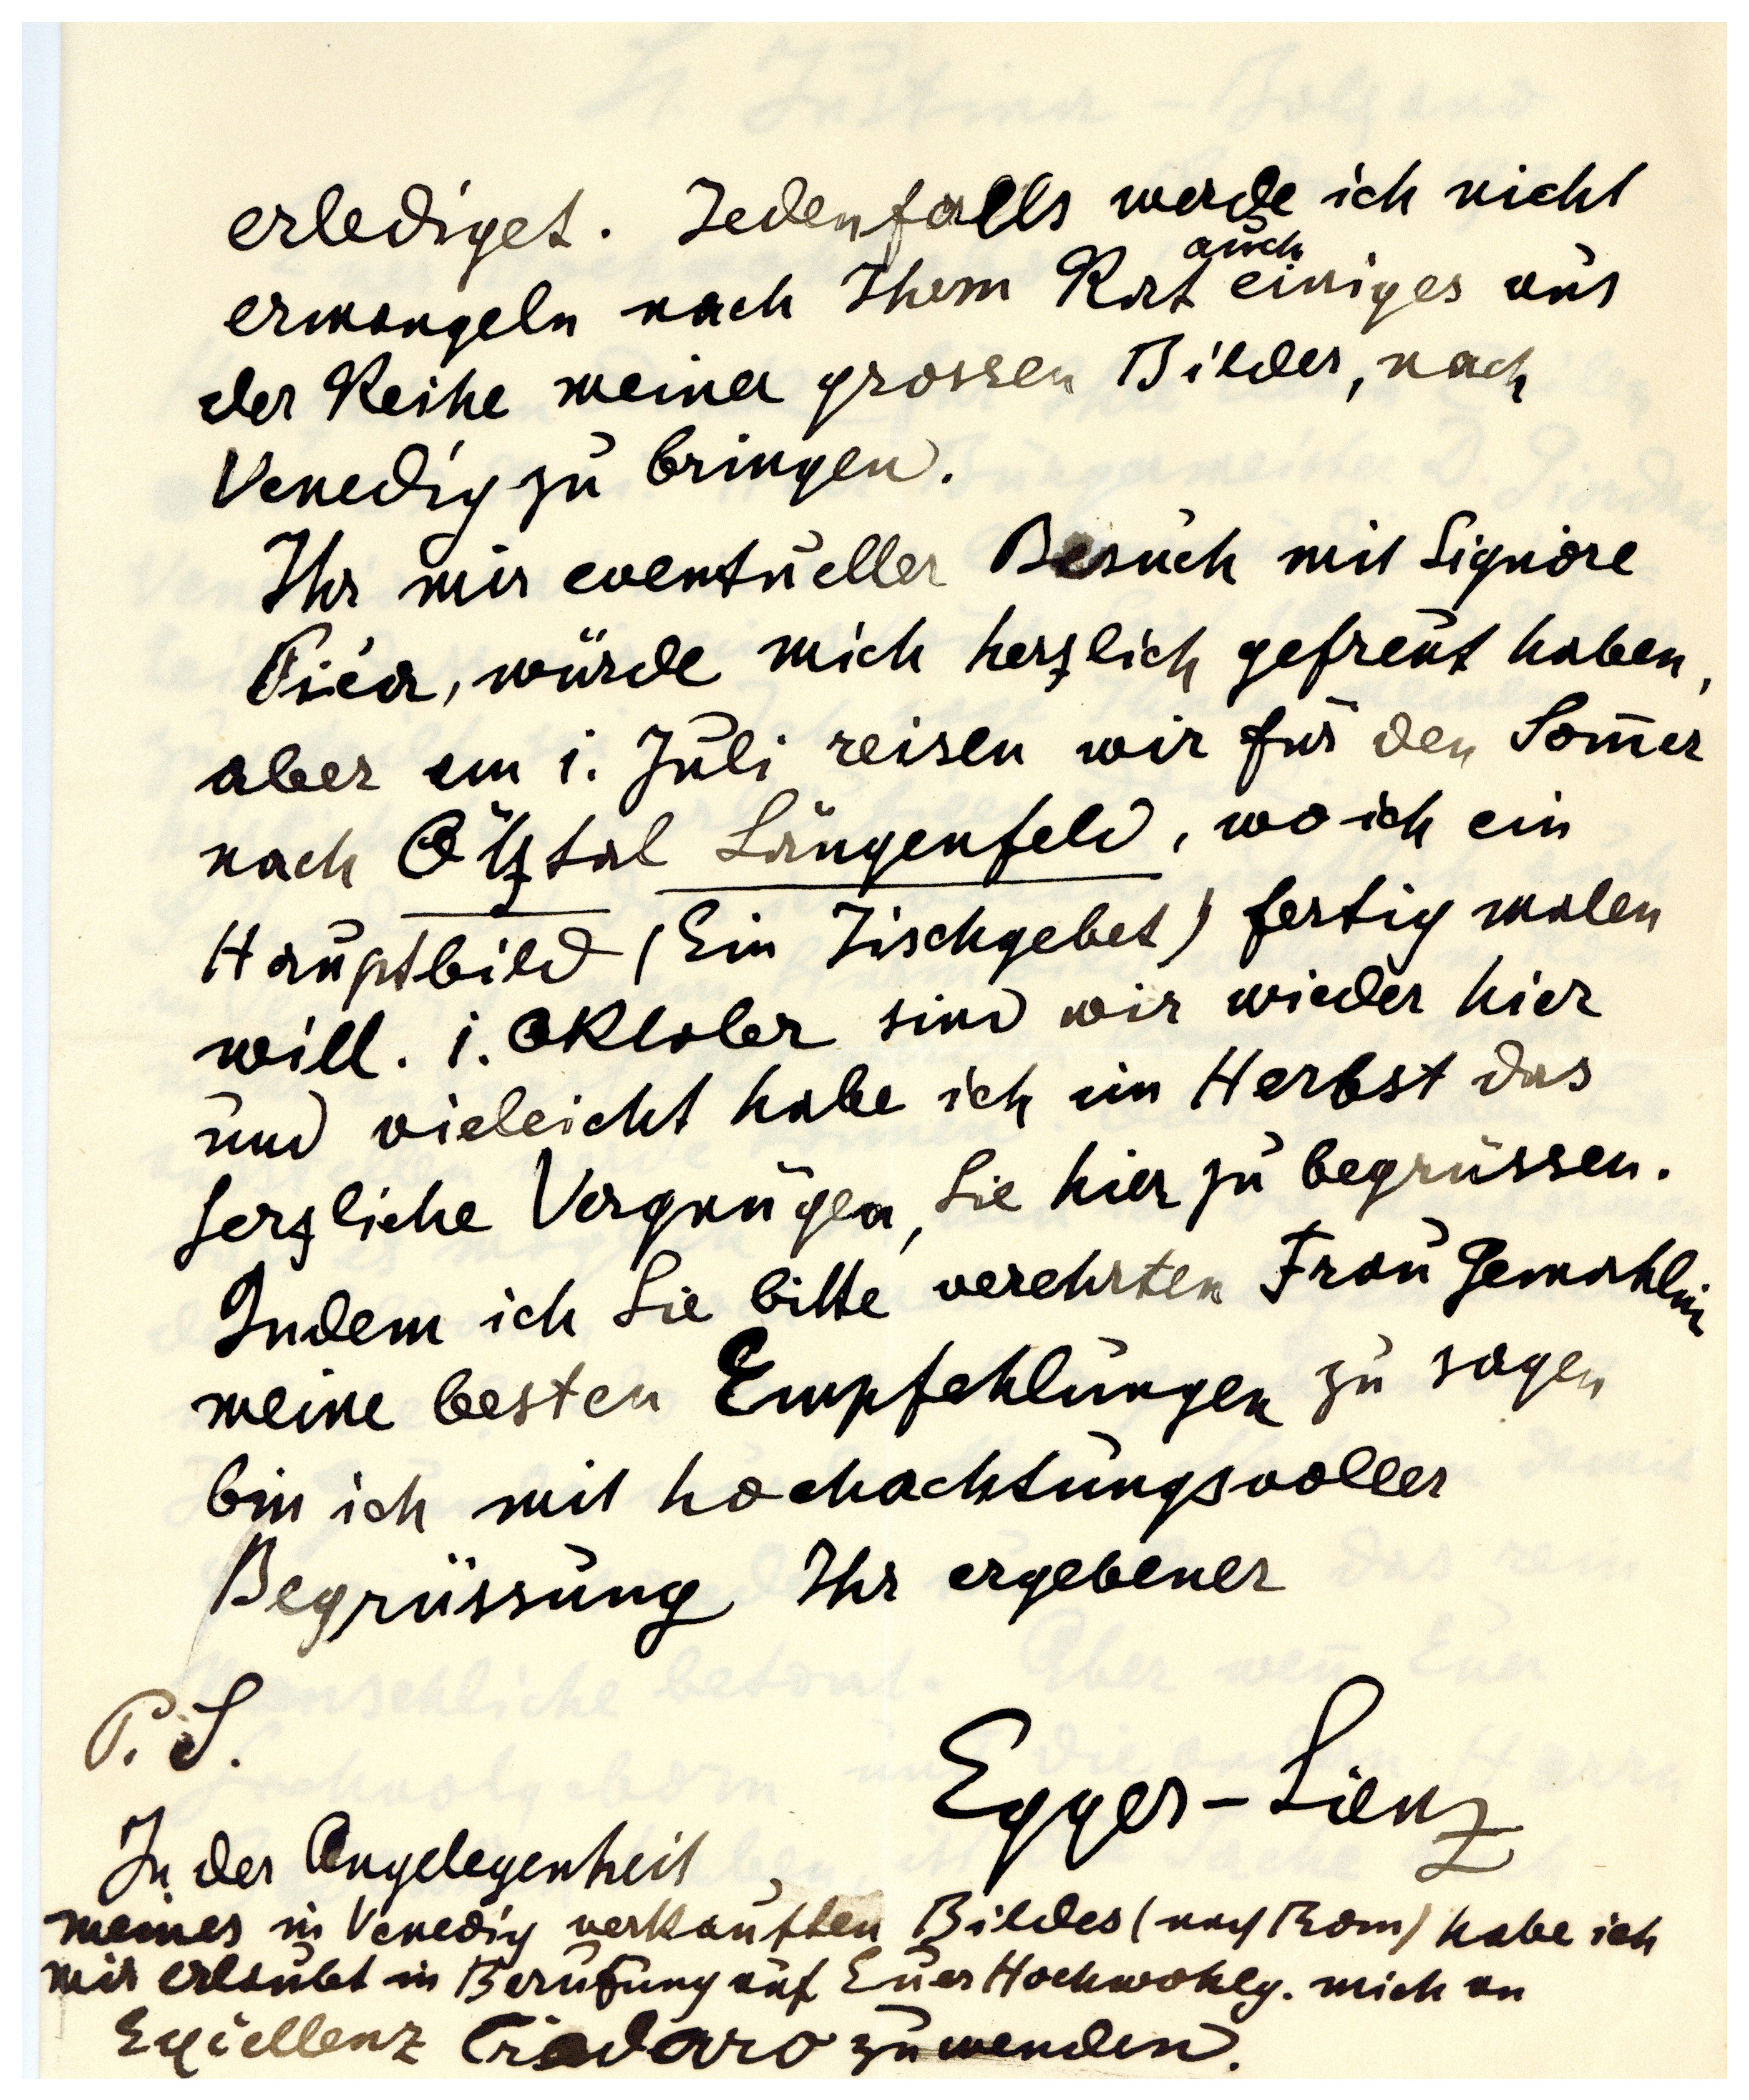 erlediget. Jedenfalls werde ich nicht
ermangeln nach Ihrem Rat auch einiges aus
der Reihe meiner grossen Bilder, nach
Venedig zu bringen.
Ihr mir eventueller Besuch mit Signore
Pica, würde mich herzlich gefreut haben,
aber am 1. Juli reisen wir für den Som̅er
nach Ötztal Längenfeld, wo ich ein
Hauptbild (Ein Tischgebet) fertig malen
will. 1. Oktober sind wir wieder hier
und vieleicht habe ich im Herbst das
herzliche Vergnügen, Sie hier zu begrüssen.
Indem ich Sie bitte verehrten Frau Gemahlin
meine besten Empfehlungen zu sagen
bin ich mit hochachtungsvoller
Begrüssung Ihr ergebener
P. S.
Egger-Lienz
In der Angelegenheit
meines in Venedig verkauften Bildes (nach Rom) habe ich
mir erlaubt in Berufung auf Euer Hochwohlg. mich an
Exzellenz Credaro zu wenden.